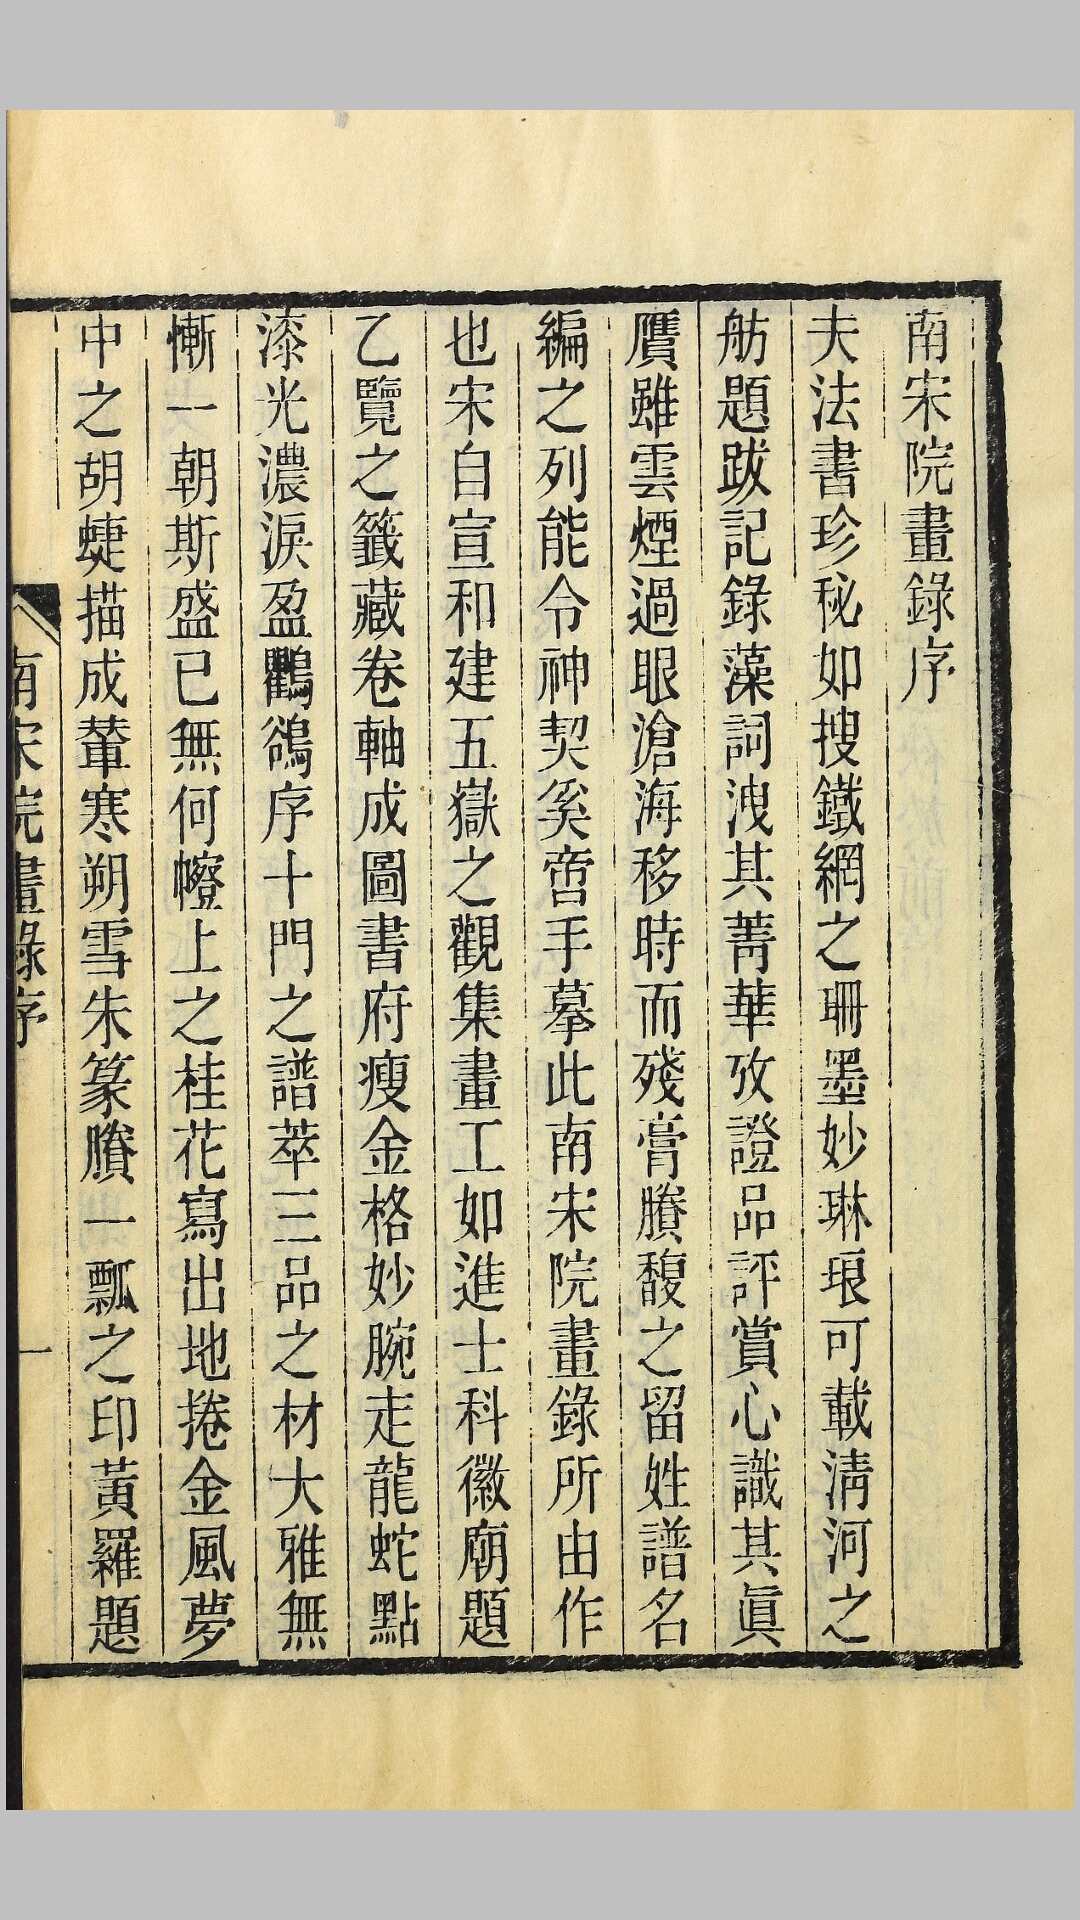 南宋院畫錄序
夫法書珍秘如搜鐵網之珊墨妙琳琅可載淸河之
舫題跋記錄藻詞洩其菁華攷證品評賞心識其眞
贋雖雲煙過眼滄海移時而殘膏賸馥之留姓譜名
編之列能令神契奚啻手摹此南宋院畫錄所由作
也宋自宣和建五嶽之觀集畫工如進士科徽廟題
乙覽之籤藏卷軸成圖書府瘦金格妙腕走龍蛇點
漆光濃淚盈鸜鵒序十門之譜萃三品之材大雅無
慚一朝斯盛已無何幰上之桂花寫出地捲金風夢
中之胡蜨描成輦寒朔雪朱篆賸一瓢之印黃羅題
南宋院畫錄序 一